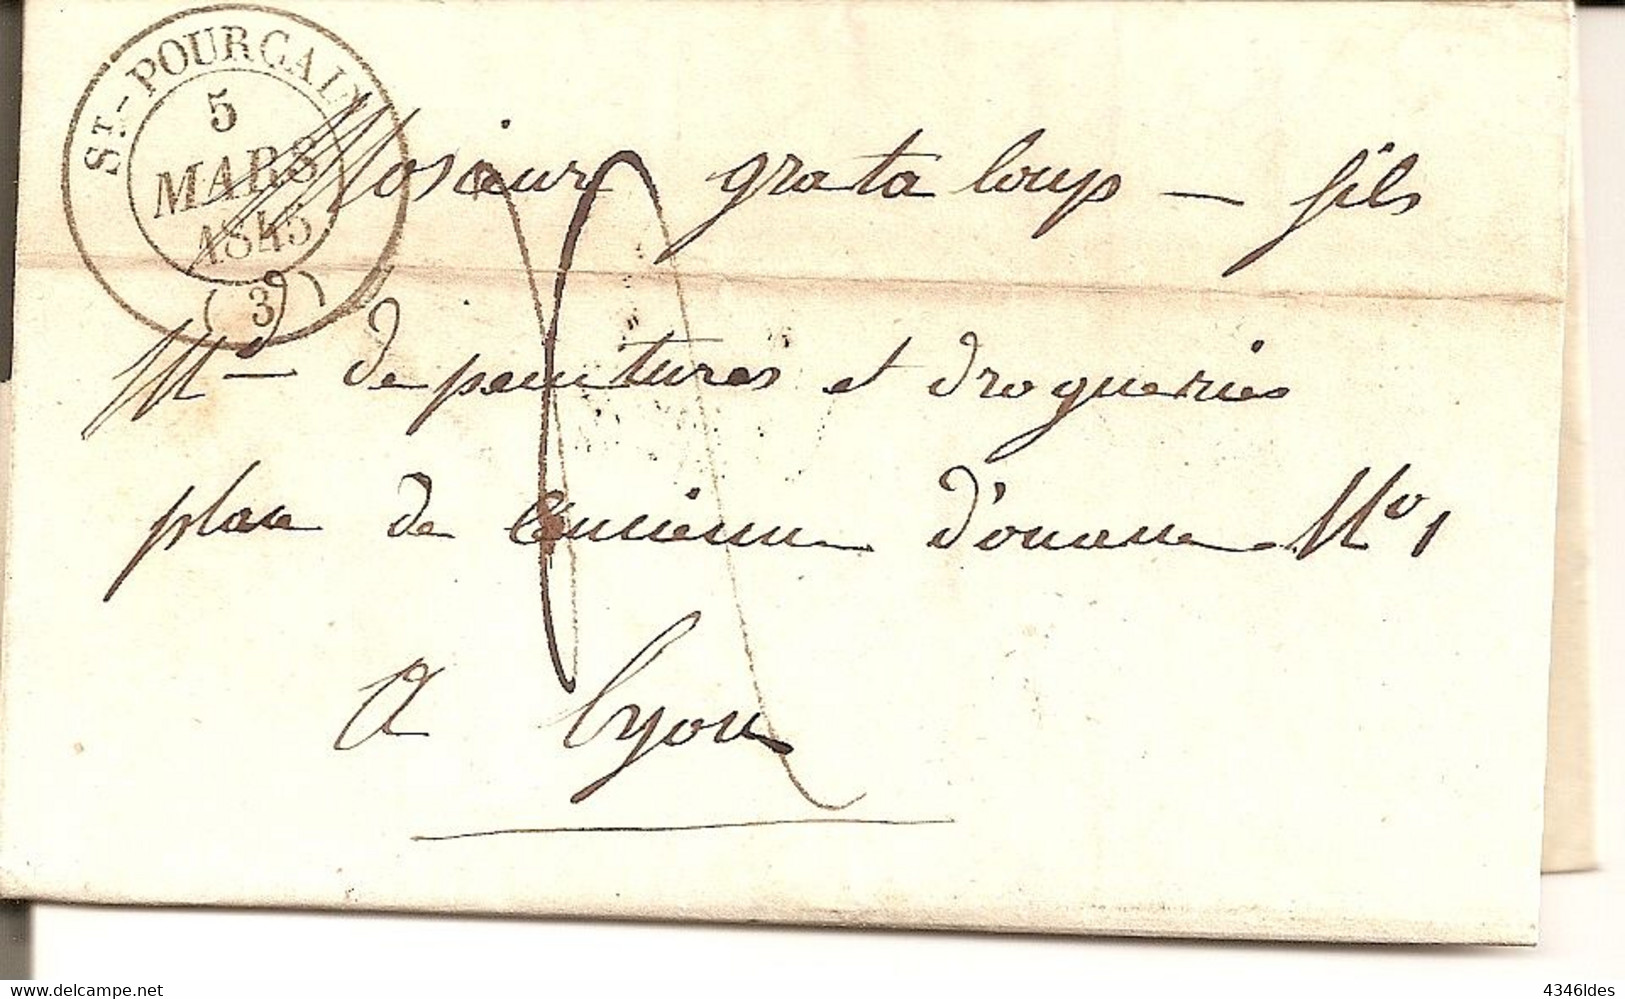 ST.-POURCAIN
5
MARS
1845
(3)
Mosieur grataloup — fils
Md — de peintures et drogueries
place de l'encienne d'ouane No 1
a Lyon
delcampe.net
4346ldes